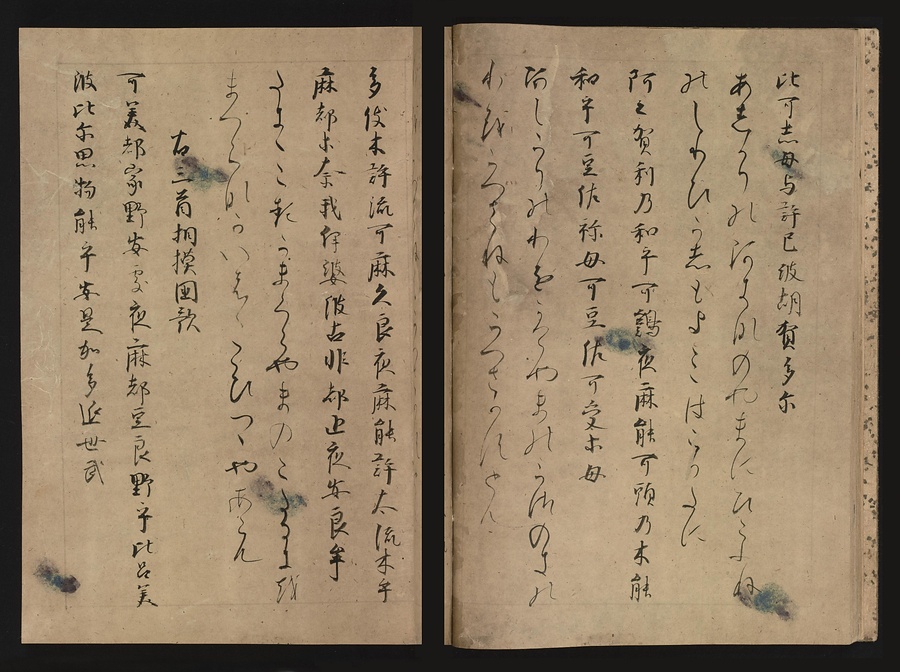 比可志母与許己波胡賀多尓
あしかりのあきなのやまにひこふね
のしりひかしもよこゝはこかたに
阿之賀利乃和乎可鶏夜麻能可頭乃木能
和乎可豆佐祢母可豆佐可受等母
あしかりのわをかけやまのかつのきの
わをかつさねもかつさかすとも
多伎木許流可麻久良夜麻能許太流木乎
麻都等奈我伊婆波古非都追夜安良牟
たきゝこるかまくらやまのこたるきを
まつとなかいはゝこひつゝやあらん
右三首相摸国歌
可美都家野安蘇夜麻都豆良野乎比呂美
波比尓思物能乎安是加多延世武